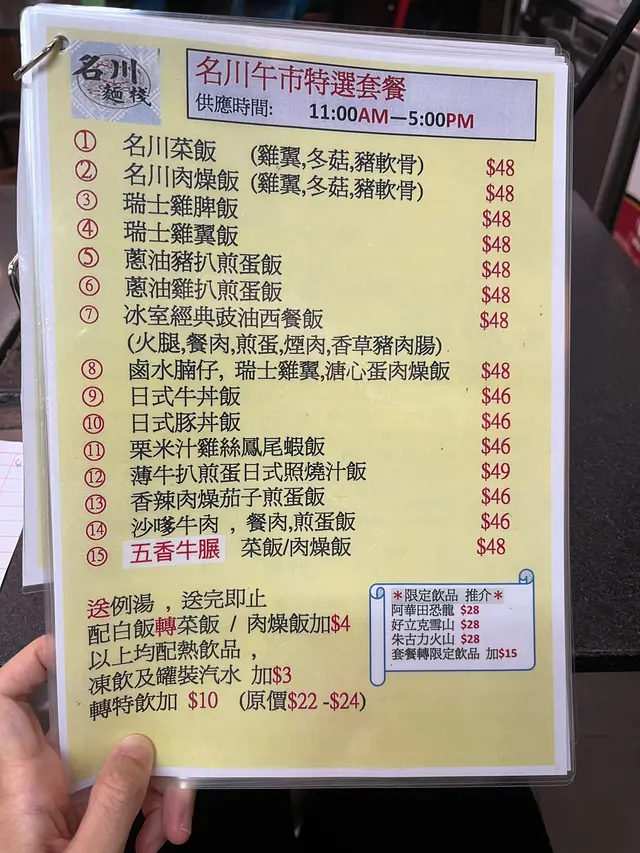 名川
麵棧
名川午市特選套餐
供應時間: 11:00AM—5:00PM
① 名川菜飯 (雞翼,冬菇,豬軟骨) $48
② 名川肉燥飯 (雞翼,冬菇,豬軟骨) $48
③ 瑞士雞脾飯 $48
④ 瑞士雞翼飯 $48
⑤ 蔥油豬扒煎蛋飯 $48
⑥ 蔥油雞扒煎蛋飯 $48
⑦ 冰室經典豉油西餐飯 $48
(火腿,餐肉,煎蛋,煙肉,香草豬肉腸)
⑧ 鹵水腩仔, 瑞士雞翼,溏心蛋肉燥飯 $48
⑨ 日式牛丼飯 $46
⑩ 日式豚丼飯 $46
⑪ 粟米汁雞絲鳳尾蝦飯 $46
⑫ 薄牛扒煎蛋日式照燒汁飯 $49
⑬ 香辣肉燥茄子煎蛋飯 $46
⑭ 沙嗲牛肉 , 餐肉,煎蛋飯 $46
⑮ 五香牛𦟌 菜飯/肉燥飯 $48
送例湯 , 送完即止
配白飯轉菜飯 / 肉燥飯加$4
以上均配熱飲品 ,
凍飲及罐裝汽水 加$3
轉特飲加 $10 (原價$22 -$24)
*限定飲品 推介*
阿華田恐龍 $28
好立克雪山 $28
朱古力火山 $28
套餐轉限定飲品 加$15